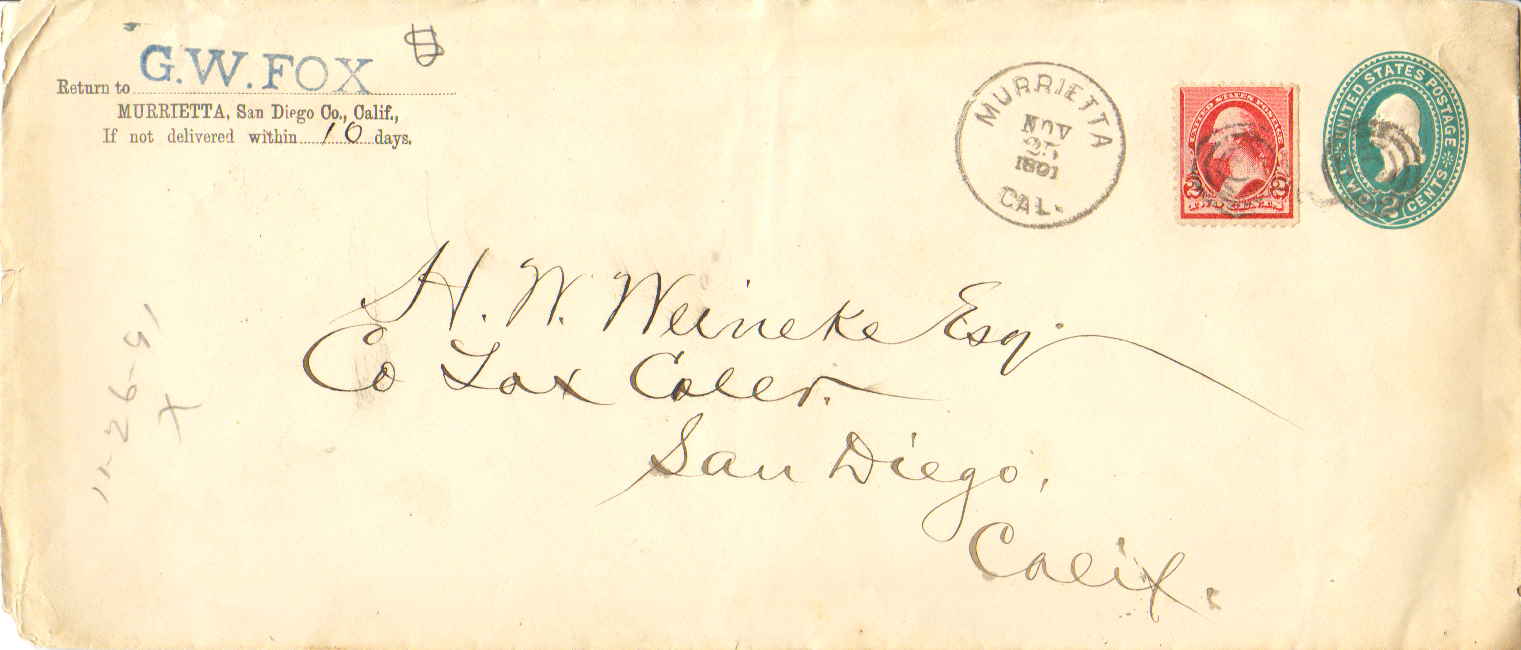 G.W.FOX
Return to
MURRIETTA, San Diego Co., Calif.,
If not delivered within 10 days.
MURRIETTA
NOV
25
1891
CAL.
UNITED STATES POSTAGE
2 2
UNITED STATES POSTAGE
TWO 2 CENTS
H. W. Weineke Esq.
Co Tax Coler.
San Diego,
Calif.
11-26-91
X